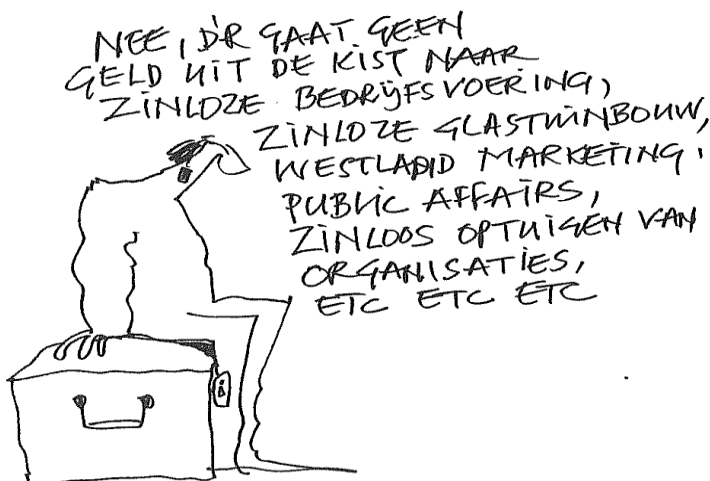 NEE, D'R GAAT GEEN
GELD UIT DE KIST NAAR
ZINLOZE BEDRIJFSVOERING,
ZINLOZE GLASTUINBOUW,
WESTLAND MARKETING,
PUBLIC AFFAIRS,
ZINLOOS OPTUIGEN VAN
ORGANISATIES,
ETC ETC ETC